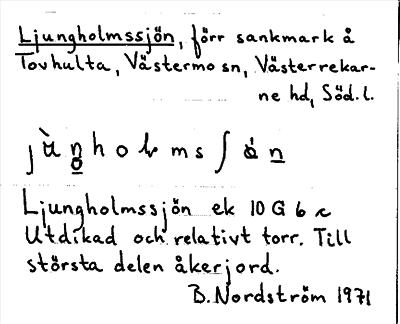 Ljungholmssjön, förr sankmark å
Tovhulta, Västermo sn, Västerrekar-
ne hd, Söd. l.
Ljungholmssjön ek 10 G 6 c
Utdikad och relativt torr. Till
största delen åkerjord.
B. Nordström 1971